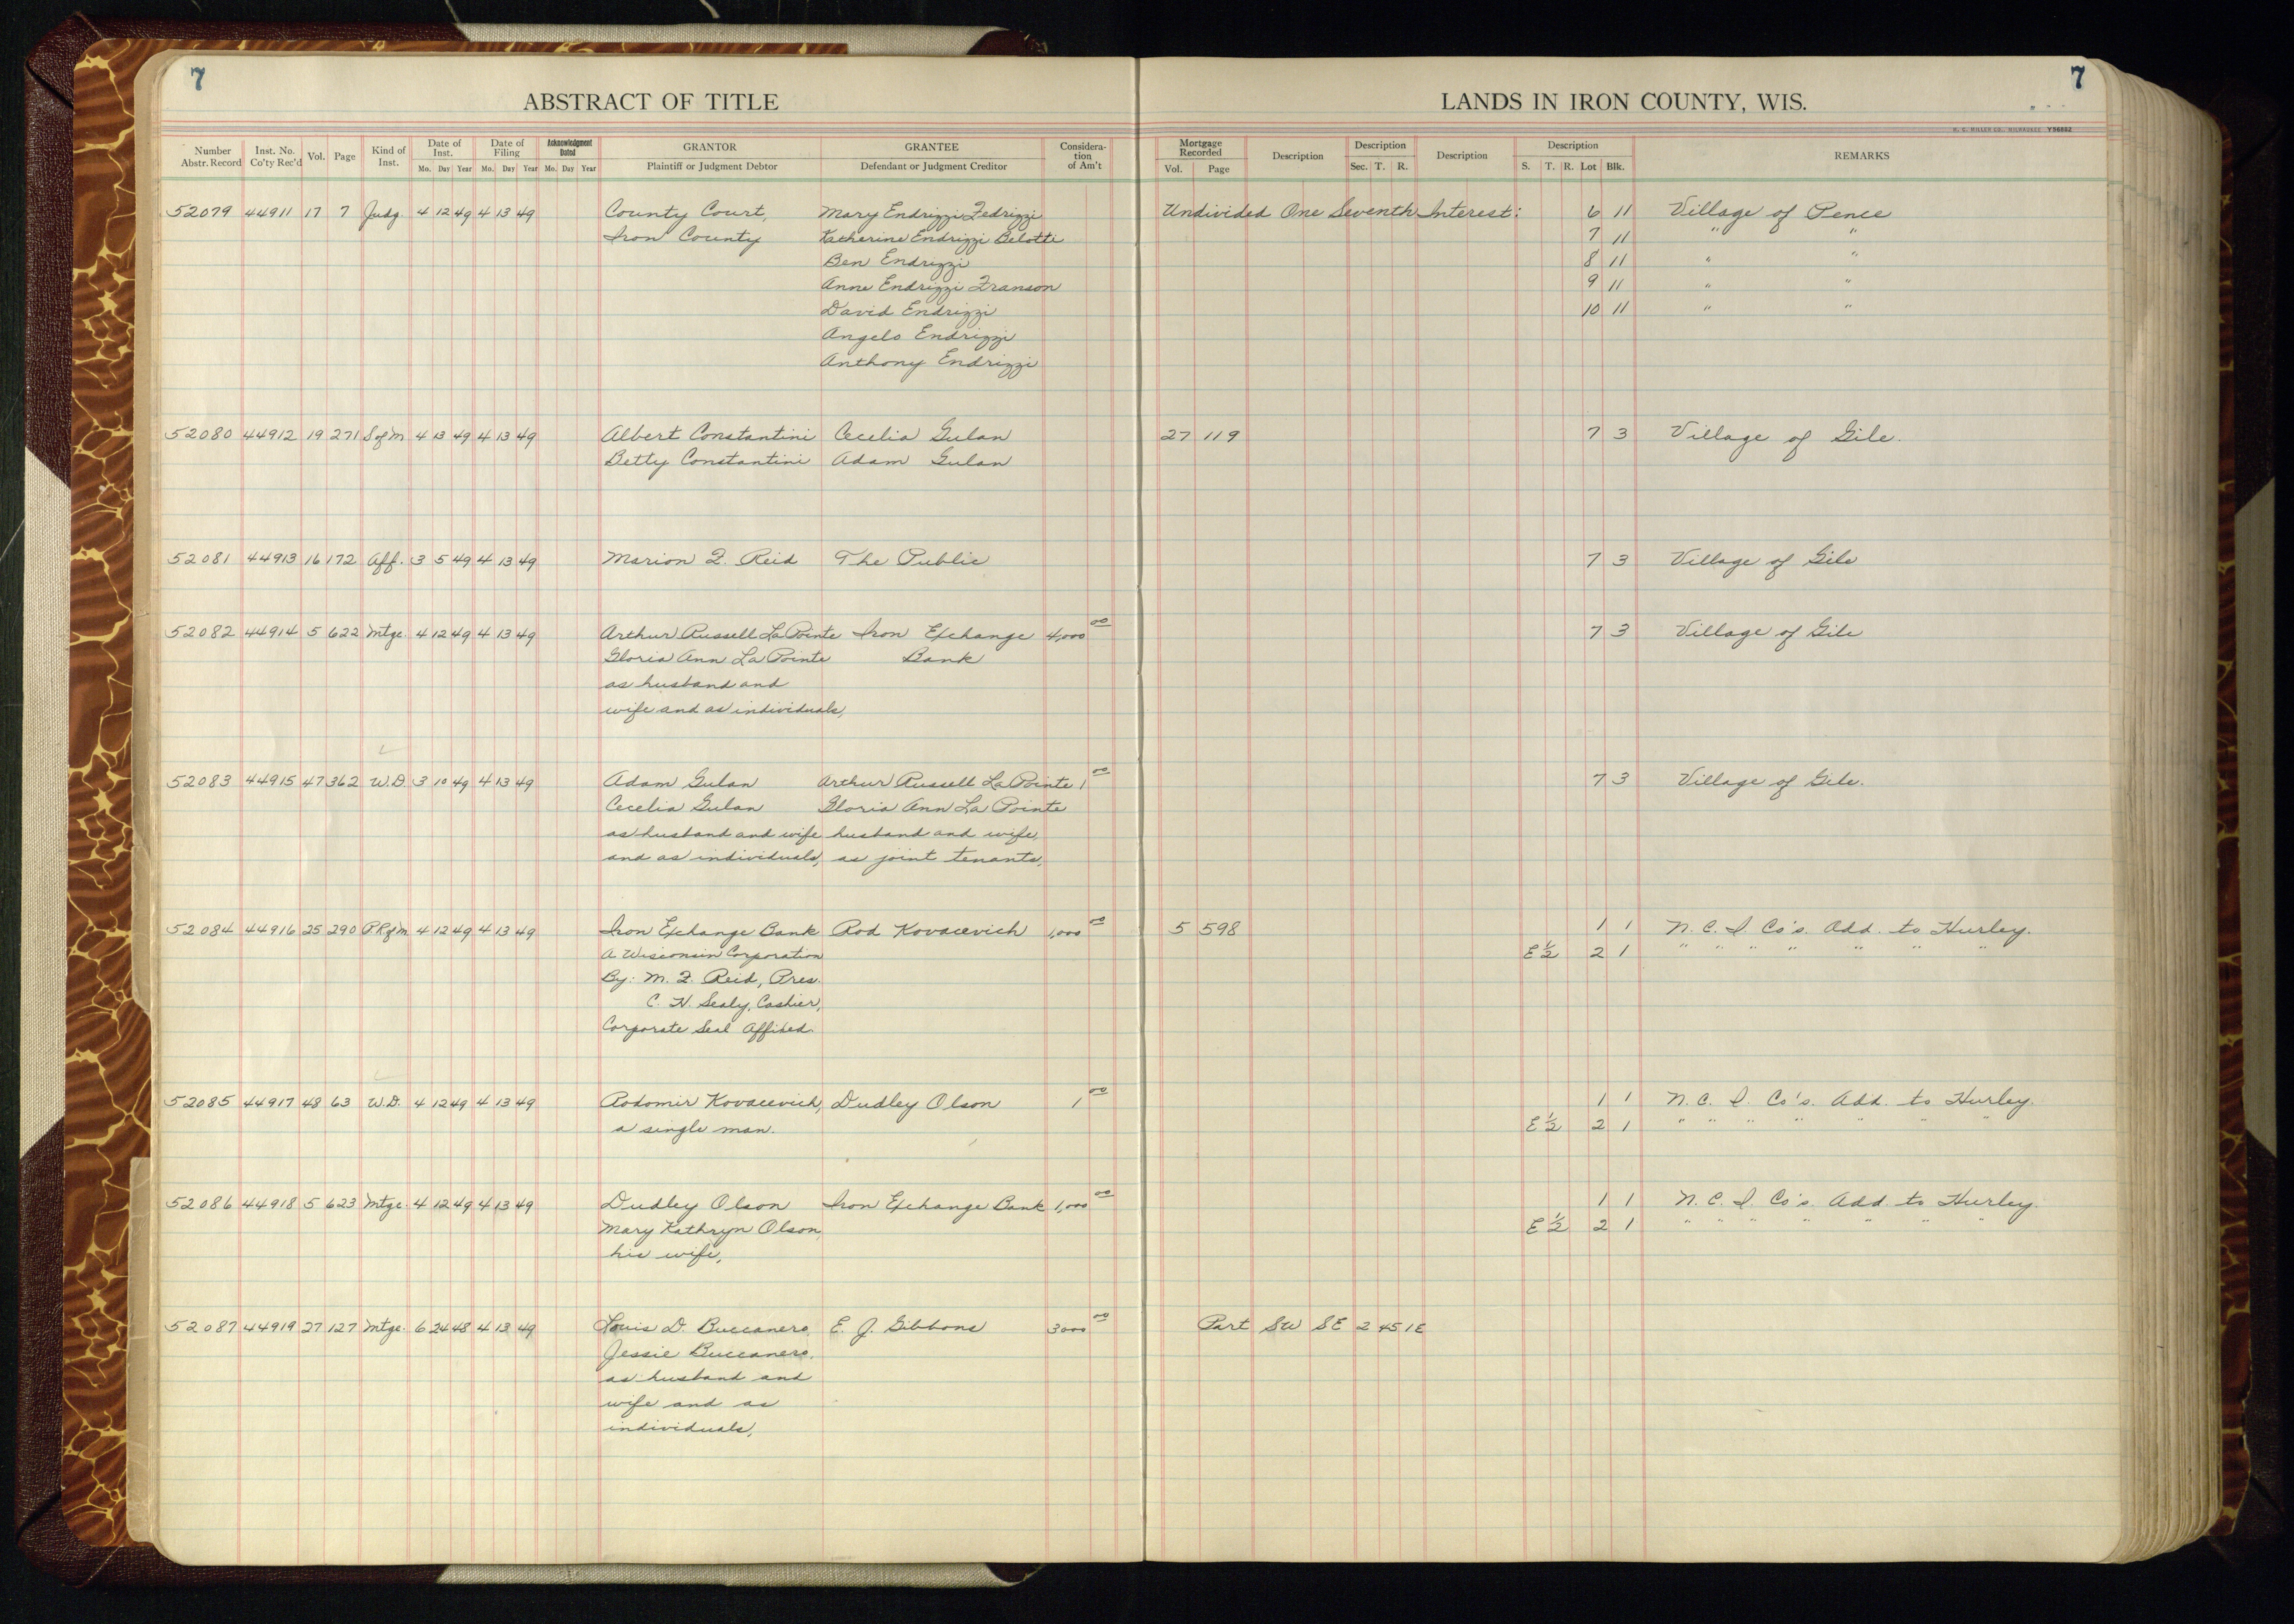 7
7
ABSTRACT OF TITLE
LANDS IN IRON COUNTY, WIS.
H. C. MILLER CO., MILWAUKEE Y56882
Number Abstr. Record
Inst. No. Co'ty Rec'd
Vol.
Page
Kind of Inst.
Date of Inst.
Mo. Day Year
Date of Filing
Mo. Day Year
Acknowledgment Dated
Mo. Day Year
GRANTOR
Plaintiff or Judgment Debtor
GRANTEE
Defendant or Judgment Creditor
Considera-tion of Am't
Mortgage Recorded
Vol. Page
Description
Description
Sec. T. R.
Description
Description
S. T. R. Lot Blk.
REMARKS
52079 44911 17 7 Judg. 4 12 49 4 13 49 County Court, Mary Endrizzi Fedrizzi Undivided One Seventh Interest: 6 11 Village of Pence
Iron County Katherine Endrizzi Belotti 7 11 " "
Ben Endrizzi 8 11 " "
Anne Endrizzi Franson 9 11 " "
David Endrizzi 10 11 " "
Angelo Endrizzi
Anthony Endrizzi
52080 44912 19 271 S of M 4 13 49 4 13 49 Albert Constantini Cecelia Gulan 27 119 7 3 Village of Gile.
Betty Constantini Adam Gulan
52081 44913 16 172 Aff. 3 5 49 4 13 49 Marion F. Reid The Public 7 3 Village of Gile
52082 44914 5 622 Mtge. 4 12 49 4 13 49 Arthur Russell LaPointe Iron Exchange 4,000 00 7 3 Village of Gile
Gloria Ann La Pointe Bank
as husband and
wife and as individuals,
52083 44915 47 362 W.D. 3 10 49 4 13 49 Adam Gulan Arthur Russell LaPointe 1 00 7 3 Village of Gile.
Cecelia Gulan Gloria Ann La Pointe
as husband and wife husband and wife,
and as individuals, as joint tenants,
52084 44916 25 290 P.R of M 4 12 49 4 13 49 Iron Exchange Bank Rod Kovacevich 1,000 00 5 598 1 1 N. C. I. Co's. Add. to Hurley.
A Wisconsin Corporation E ½ 2 1 " " " " " " "
By: M. F. Reid, Pres.
C. N. Sealy, Cashier,
Corporate Seal Affixed.
52085 44917 48 63 W.D. 4 12 49 4 13 49 Rodomir Kovacevich, Dudley Olson 1 00 1 1 N. C. I. Co's. Add. to Hurley.
a single man. E ½ 2 1 " " " " " " "
52086 44918 5 623 Mtge. 4 12 49 4 13 49 Dudley Olson Iron Exchange Bank 1,000 00 1 1 N. C. I. Co's. Add. to Hurley.
Mary Kathryn Olson, E ½ 2 1 " " " " " " "
his wife,
52087 44919 27 127 Mtge. 6 24 48 4 13 49 Louis D. Buccanero, E. J. Gibbons 3000 00 Part SW SE 2 45 1E
Jessie Buccanero,
as husband and
wife and as
individuals,